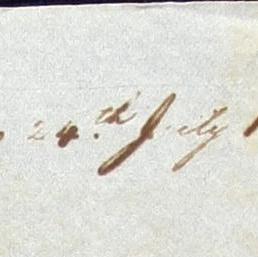 24th July